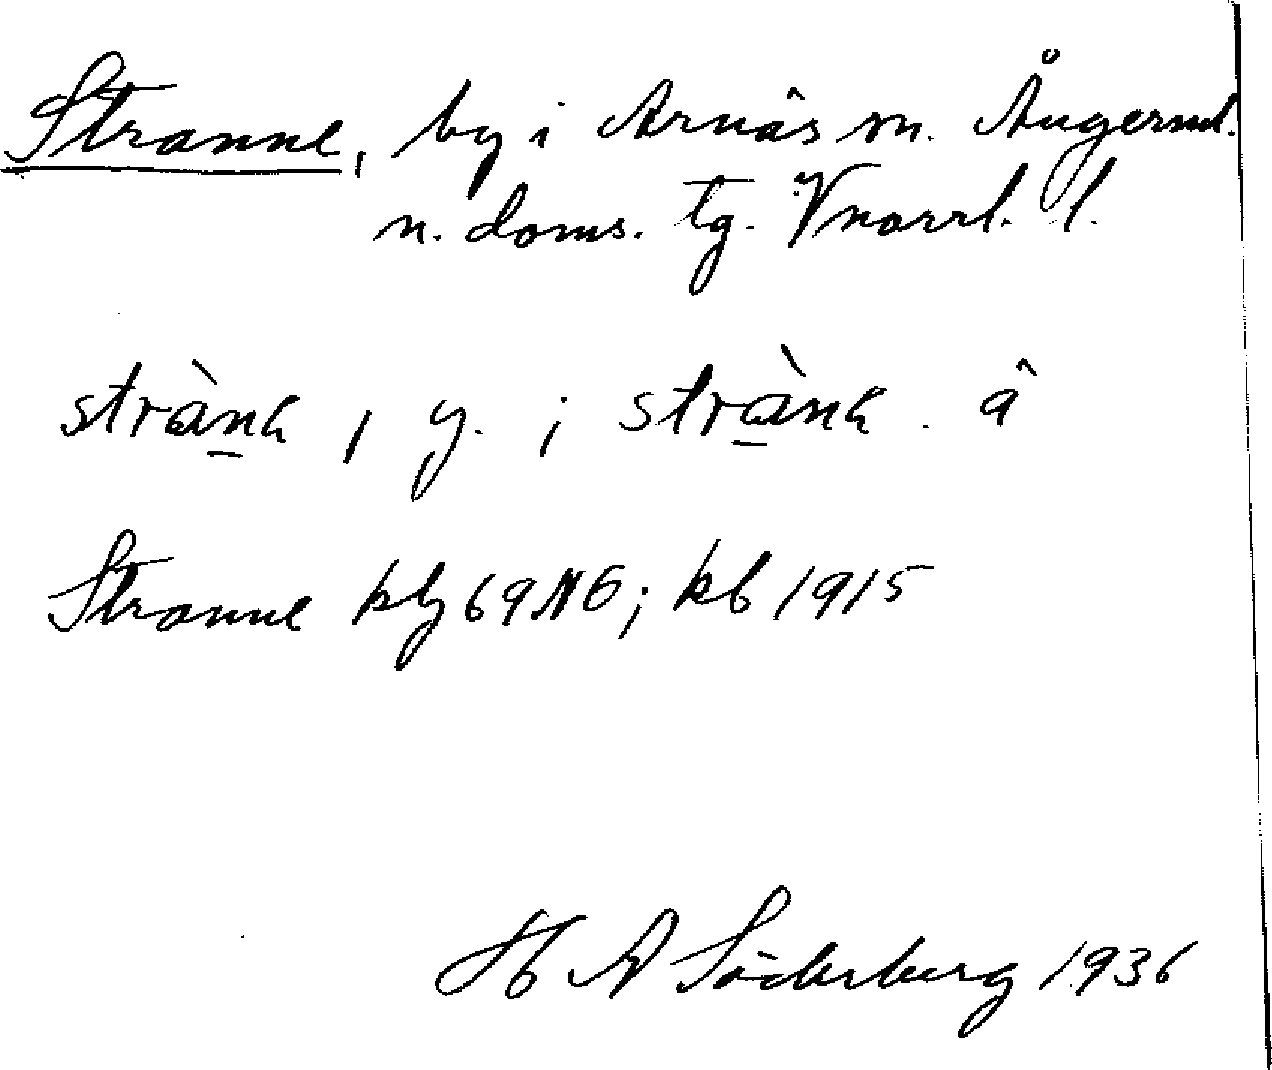 Stranne, by i Arnäs sn. Ångerml.
n. doms. tg. Vnorrl. l.
stràn̲a, y. ; strà̲na . â
Stranne kbg 69 NO; kb 1915
H A Söderberg 1936